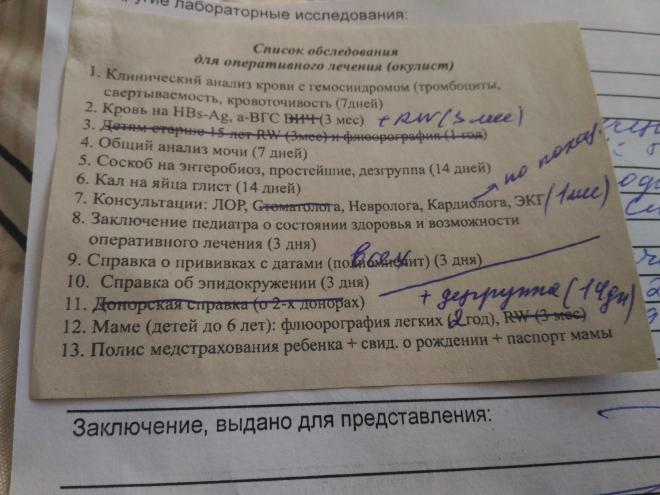 другие лабораторные исследования:
Список обследования
для оперативного лечения (окулист)
1. Клинический анализ крови с гемосиндромом (тромбоциты,
свертываемость, кровоточивость (7дней)
2. Кровь на HBs-Ag, а-ВГС ВИЧ (3 мес) + RW (3 мес)
3. Детям старше 15 лет RW (3мес) и флюорография (1 год)
4. Общий анализ мочи (7 дней)
5. Соскоб на энтеробиоз, простейшие, дезгруппа (14 дней)
6. Кал на яйца глист (14 дней)
по показ.
7. Консультации: ЛОР, Стоматолога, Невролога, Кардиолога, ЭКГ (1 мес)
8. Заключение педиатра о состоянии здоровья и возможности
оперативного лечения (3 дня)
9. Справка о прививках с датами (полиомиелит) (3 дня)
всех
10. Справка об эпидокружении (3 дня)
11. Донорская справка (о 2-х донорах)
+ дезгруппа (14 дн)
12. Маме (детей до 6 лет): флюорография легких (2 год), RW (3 мес)
13. Полис медстрахования ребенка + свид. о рождении + паспорт мамы
Заключение, выдано для представления: